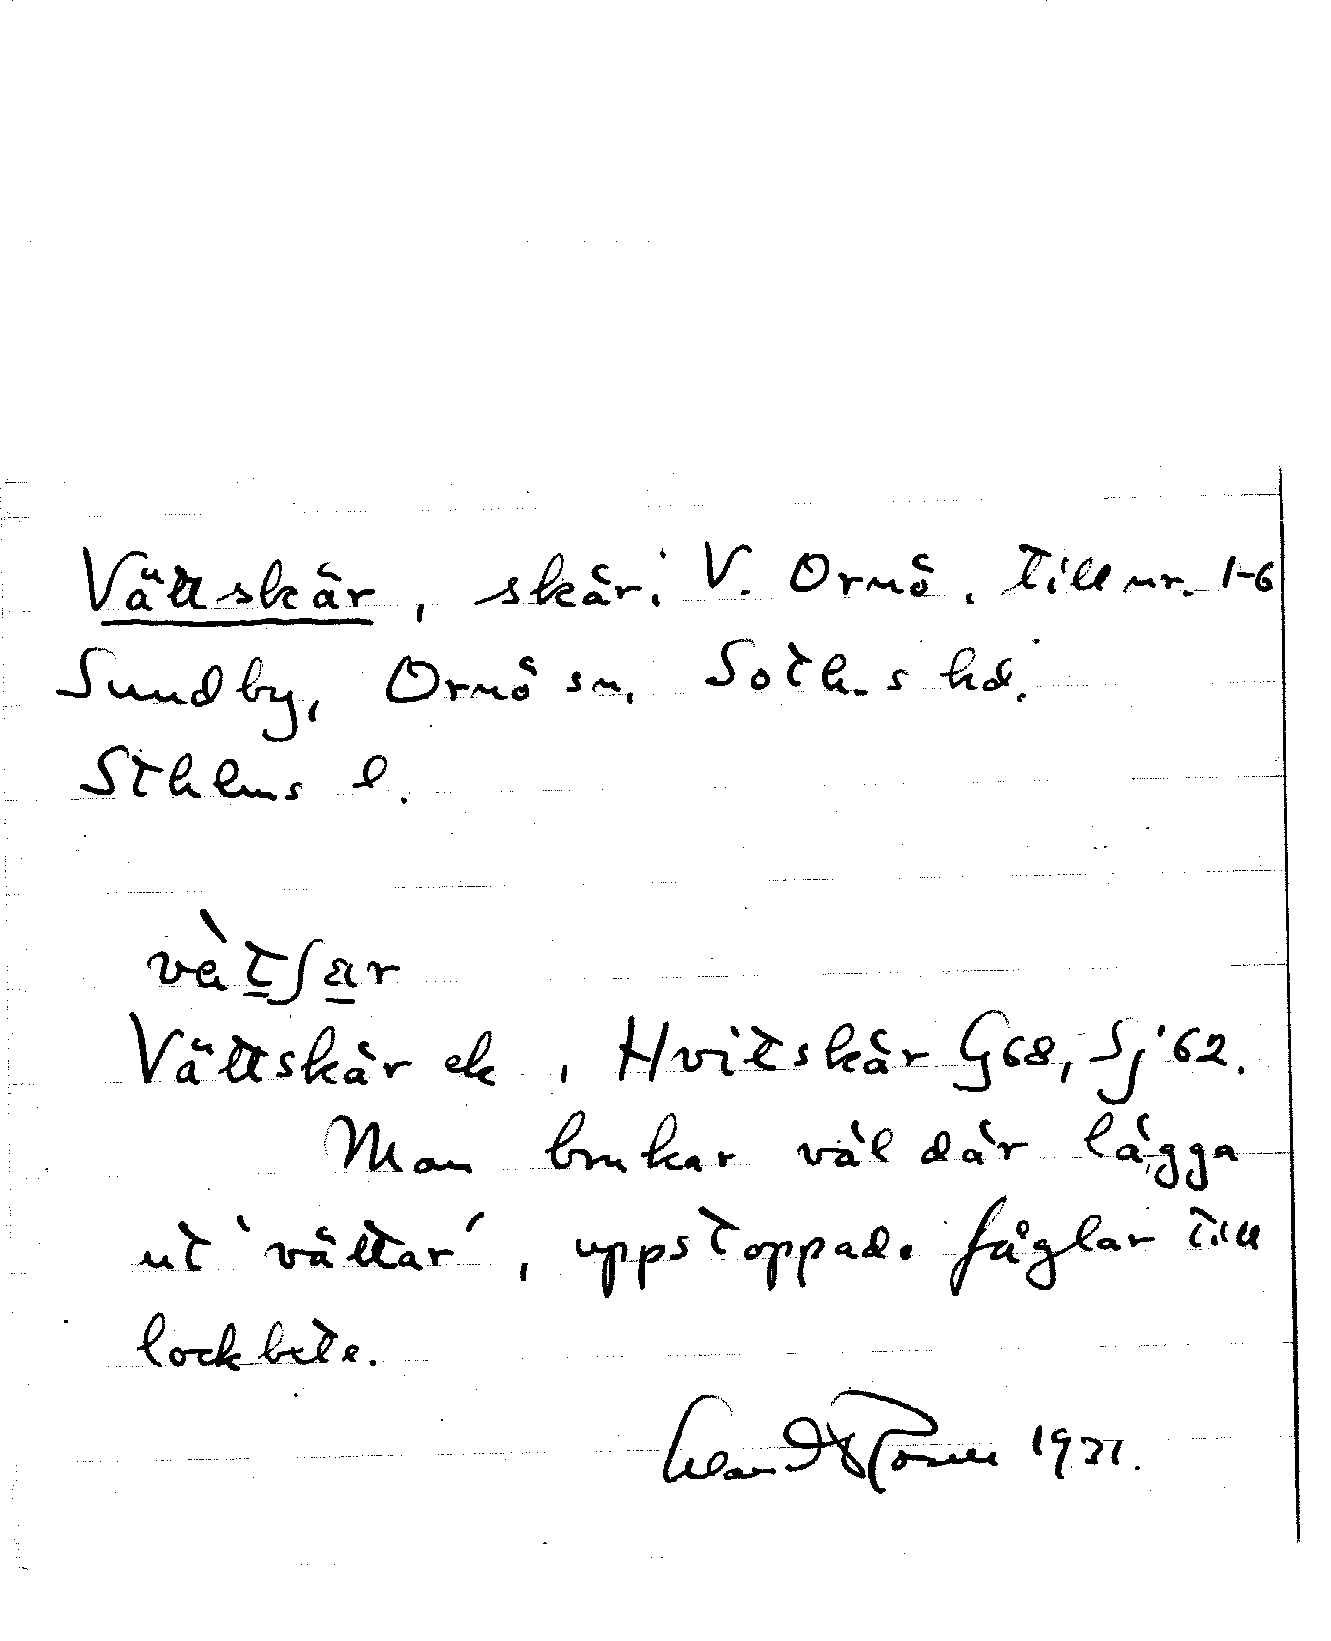 Vättskär, skär, V. Ornö, till nr. 1-6
Sundby, Ornö sn, Soth.s hd.
Sthlms l.
vètʃar
Vättskär ek, Hvitskär G68, Sj 62.
Man brukar väl där lägga
ut 'vättar', uppstoppade fåglar till
lockbete.
1931.